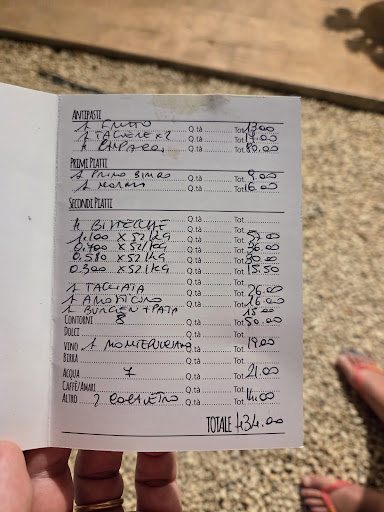 ANTIPASTI
1 FRITTO Q.tà Tot. 13.00
1 TAGLIERE X2 Q.tà Tot. 17.00
Q.tà Tot. 80.00
PRIMI PIATTI
1 PRIMO BIMBO Q.tà Tot. 9.00
1 NORMA Q.tà Tot. 16.00
SECONDI PIATTI
4 BISTECCHE Q.tà Tot.
1.100 X 52/KG Q.tà Tot.
0.700 X 52/KG Q.tà Tot. 36.00
0.580 X 52/KG Q.tà Tot. 30.00
0.300 X 52/KG Q.tà Tot. 15.50
1 TAGLIATA Q.tà Tot. 26.00
1 Q.tà Tot. 16.00
1 BURGER + PATA Q.tà Tot. 15.00
CONTORNI 8 Q.tà Tot. 50.00
DOLCI Q.tà Tot.
VINO 1 MONTEPULCIANO Q.tà Tot. 19.00
BIRRA Q.tà Tot.
ACQUA 7 Q.tà Tot. 21.00
CAFFÈ/AMARI Q.tà Tot.
ALTRO 2 Q.tà Tot. 14.00
TOTALE 434.00